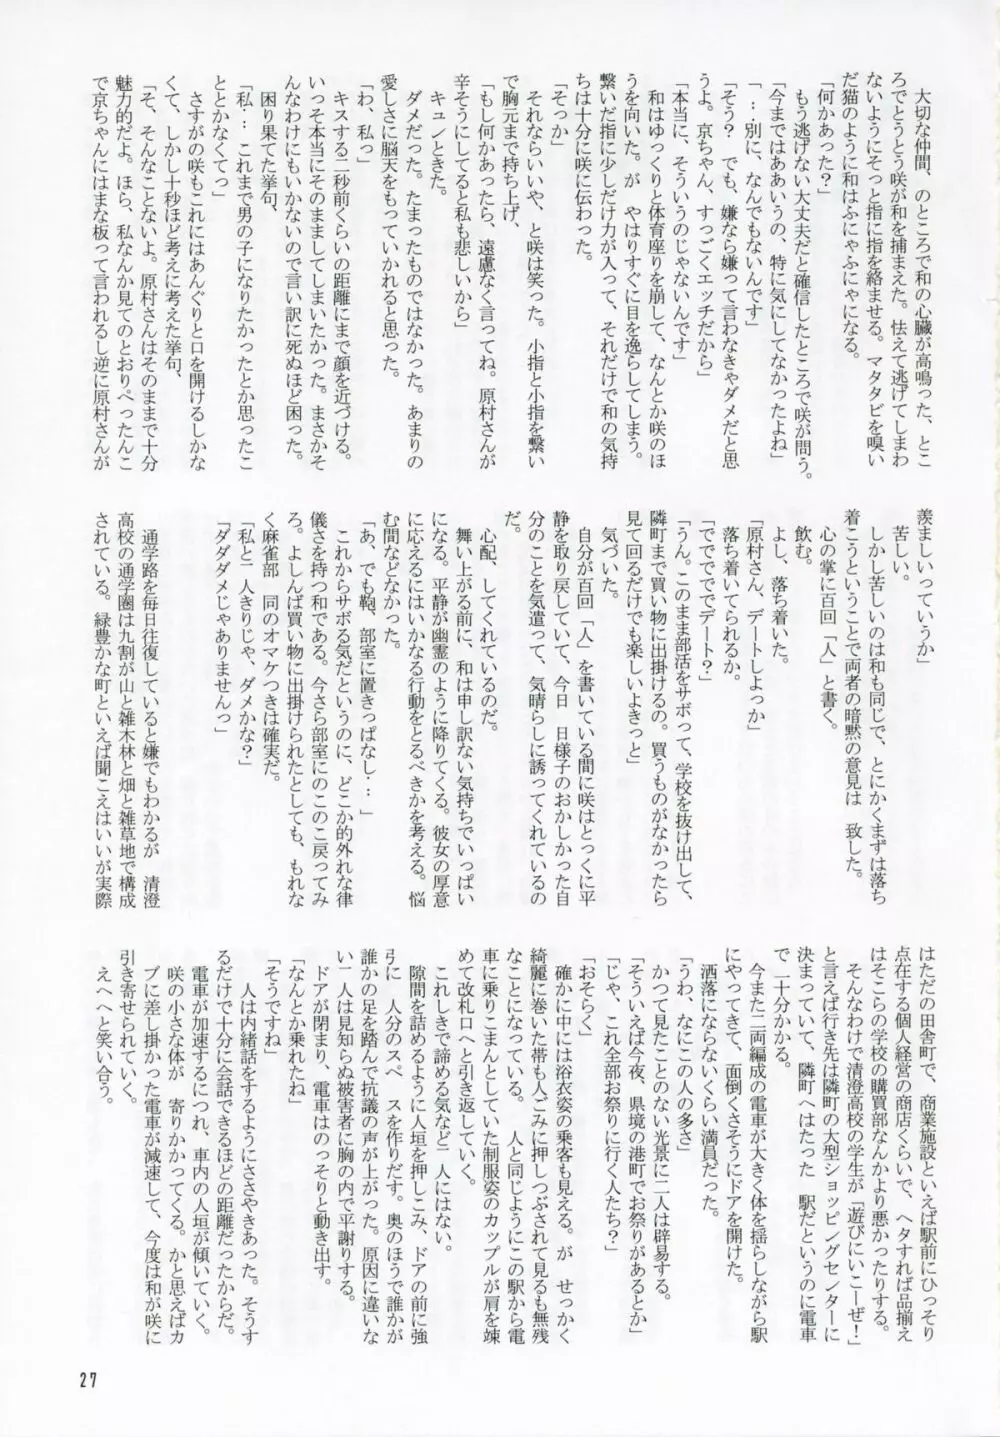 大切な仲間、のところで和の心臓が高鳴った、とこ
ろでとうとう咲が和を捕まえた。怯えて逃げてしまわ
ないようにそっと指に指を絡ませる。マタタビを嗅い
だ猫のように和はふにゃふにゃになる。
「何かあった？」
もう逃げない大丈夫だと確信したところで咲が問う。
「今まではああいうの、特に気にしてなかったよね」
「…別に、なんでもないんです」
「そう？ でも、嫌なら嫌って言わなきゃダメだと思
うよ。京ちゃん、すっごくエッチだから」
「本当に、そういうのじゃないんです」
和はゆっくりと体育座りを崩して、なんとか咲のほ
うを向いた。が やはりすぐに目を逸らしてしまう。
繋いだ指に少しだけ力が入って、それだけで和の気持
ちは十分に咲に伝わった。
「そっか」
それならいいや、と咲は笑った。小指と小指を繋い
で胸元まで持ち上げ、
「もし何かあったら、遠慮なく言ってね。原村さんが
辛そうにしてると私も悲しいから」
キュンときた。
ダメだった。たまったものではなかった。あまりの
愛しさに脳天をもっていかれると思った。
「わ、私っ」
キスする二秒前くらいの距離にまで顔を近づける。
いっそ本当にそのまましてしまいたかった。まさかそ
んなわけにもいかないので言い訳に死ぬほど困った。
困り果てた挙句、
「私… これまで男の子になりたかったとか思ったこ
ととかなくてっ」
さすがの咲もこれにはあんぐりと口を開けるしかな
くて、しかし十秒ほど考えに考えた挙句、
「そ、そんなことないよ。原村さんはそのままで十分
魅力的だよ。ほら、私なんか見てのとおりぺったんこ
で京ちゃんにはまな板って言われるし逆に原村さんが
羨ましいっていうか」
苦しい。
しかし苦しいのは和も同じで、とにかくまずは落ち
着こうということで両者の暗黙の意見は 致した。
心の掌に百回「人」と書く。
飲む。
よし、落ち着いた。
「原村さん、デートしよっか」
落ち着いてられるか。
「でででででデート？」
「うん。このまま部活をサボって、学校を抜け出して、
隣町まで買い物に出掛けるの。買うものがなかったら
見て回るだけでも楽しいよきっと」
気づいた。
自分が百回「人」を書いている間に咲はとっくに平
静を取り戻していて、今日 日様子のおかしかった自
分のことを気遣って、気晴らしに誘ってくれているの
だ。
心配、してくれているのだ。
舞い上がる前に、和は申し訳ない気持ちでいっぱい
になる。平静が幽霊のように降りてくる。彼女の厚意
に応えるにはいかなる行動をとるべきかを考える。悩
む間などなかった。
「あ、でも鞄、部室に置きっぱなし…」
これからサボる気だというのに、どこか的外れな律
儀さを持つ和である。今さら部室にのこのこ戻ってみ
ろ。よしんば買い物に出掛けられたとしても、もれな
く麻雀部 同のオマケつきは確実だ。
「私と二人きりじゃ、ダメかな？」
「ダダダメじゃありませんっ」
通学路を毎日往復していると嫌でもわかるが 清澄
高校の通学圏は九割が山と雑木林と畑と雑草地で構成
されている。緑豊かな町といえば聞こえはいいが実際
はただの田舎町で、商業施設といえば駅前にひっそり
点在する個人経営の商店くらいで、ヘタすれば品揃え
はそこらの学校の購買部なんかより悪かったりする。
そんなわけで清澄高校の学生が「遊びにいこーぜ！」
と言えば行き先は隣町の大型ショッピングセンターに
決まっていて、隣町へはたった 駅だというのに電車
で二十分かかる。
今また二両編成の電車が大きく体を揺らしながら駅
にやってきて、面倒くさそうにドアを開けた。
洒落にならないくらい満員だった。
「うわ、なにこの人の多さ」
かつて見たことのない光景に二人は辟易する。
「そういえば今夜、県境の港町でお祭りがあるとか」
「じゃ、これ全部お祭りに行く人たち？」
「おそらく」
確かに中には浴衣姿の乗客も見える。が せっかく
綺麗に巻いた帯も人ごみに押しつぶされて見るも無残
なことになっている。 人と同じようにこの駅から電
車に乗りこまんとしていた制服姿のカップルが肩を竦
めて改札口へと引き返していく。
これしきで諦める気など二人にはない。
隙間を詰めるように人垣を押しこみ、ドアの前に強
引に 人分のスペ スを作りだす。奥のほうで誰かが
誰かの足を踏んで抗議の声が上がった。原因に違いな
い二人は見知らぬ被害者に胸の内で平謝りする。
ドアが閉まり、電車はのっそりと動き出す。
「なんとか乗れたね」
「そうですね」
二人は内緒話をするようにささやきあった。そうす
るだけで十分に会話できるほどの距離だったからだ。
電車が加速するにつれ、車内の人垣が傾いていく。
咲の小さな体が 寄りかかってくる。かと思えばカ
ーブに差し掛かった電車が減速して、今度は和が咲に
引き寄せられていく。
えへへと笑い合う。
27